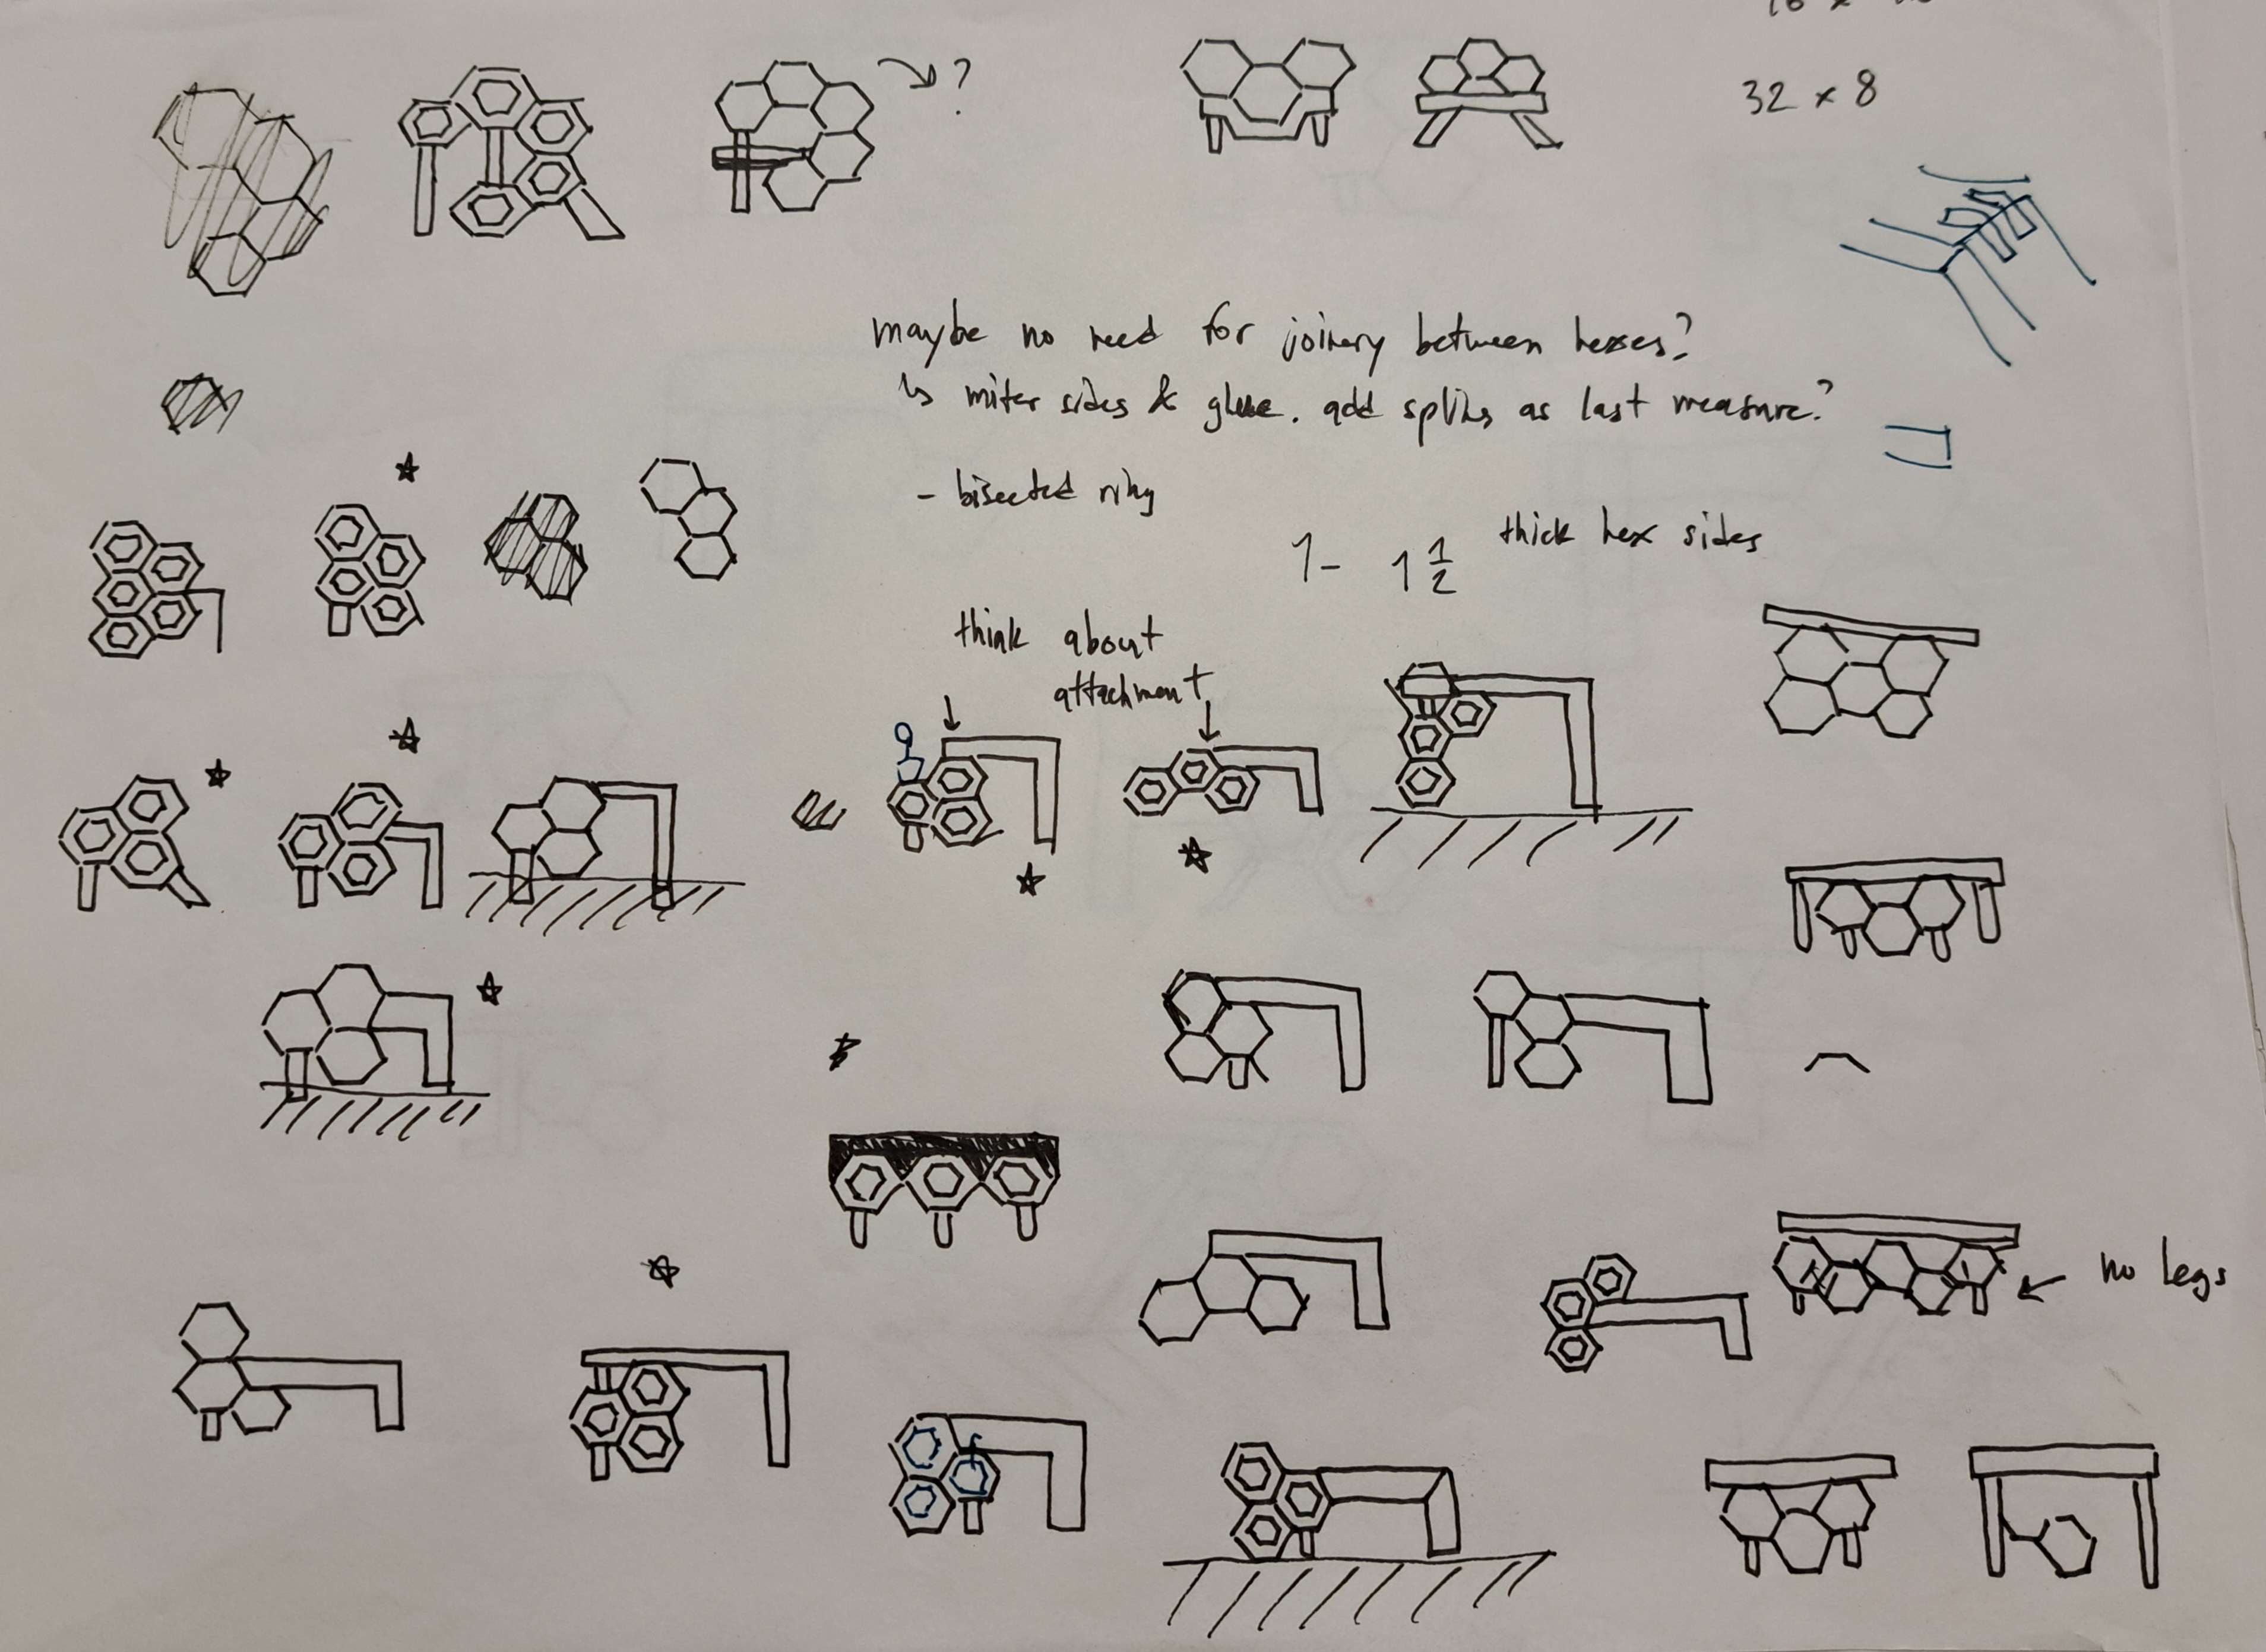 ?
32 x 8
maybe no need for joinery between hexes?
↳ miter sides & glue. add splins as last measure?
- bisected ring
1 - 1 1/2 thick hex sides
think about
attachment
no legs